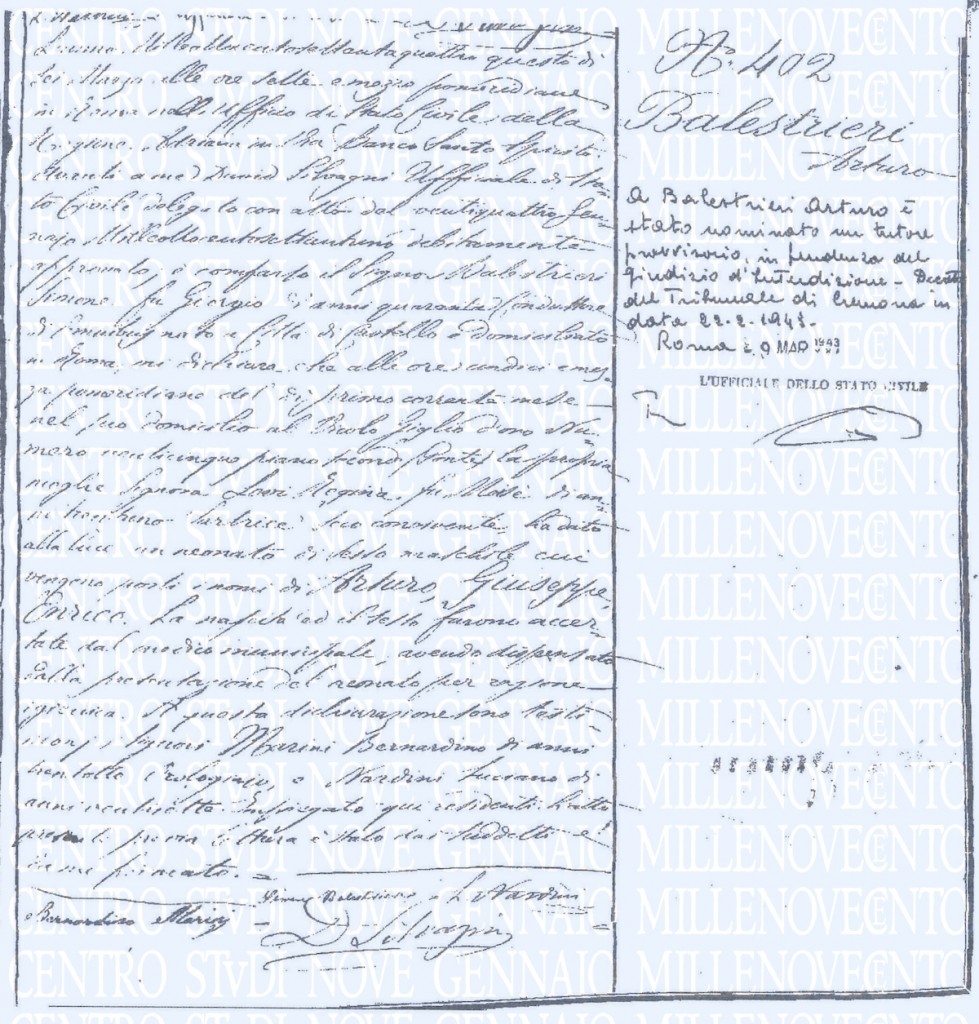 L'anno Milleottocentosettantaquattro questo dì
sei Marzo alle ore sette e mezzo pomeridiane
in Roma nell'Ufficio di Stato Civile della
Regione Adriana in Via Banco Santo Spirito.
Avanti a me David Silvagni Ufficiale di Sta-
to Civile delegato con atto del ventiquattro Gen-
najo Milleottocentosettantuno debitamente
approvato, è comparso il Signor Balestrieri
Simone fu Giorgio di anni quaranta Conduttore
di nato a Città di Castello e domiciliato
in Roma, mi dichiara, che alle ore undici e mez-
za pomeridiane del dì primo corrente mese
nel suo domicilio al Vicolo Giglio d'oro Nu-
mero venticinque piano secondo (Ponte) la propria
moglie Signora Regina fu Mosè di an-
ni trentuno Sartrice seco convivente, ha dato
alla luce un neonato di sesso maschile cui
vengono posti i nomi di Arturo, Giuseppe,
Enrico. La nascita ed il sesso furono accer-
tate dal medico municipale, avendo dispensato
dalla presentazione del neonato per ragione
igienica. A questa dichiarazione sono testi-
monj i Signori Marini Bernardino di anni
trentotto Orologiajo, e Nardini Luciano di
anni ventisette Impiegato qui residenti. L'atto
presente previa lettura è stato dai suddetti e
da me firmato. =
Simone Balestrieri = L. Nardini
Bernardino Marini = D. Silvagni
N.º 402
Balestrieri
Arturo
A Balestrieri Arturo è
stato nominato un tutore
provvisorio, in pendenza del
giudizio d'Interdizione - Decreto
del Tribunale di Cremona in
data 22-2-1943.
Roma 29 MAR 1943
L'UFFICIALE DELLO STATO CIVILE
CENTRO STVDI NOVE GENNAIO MILLENOVECENTO